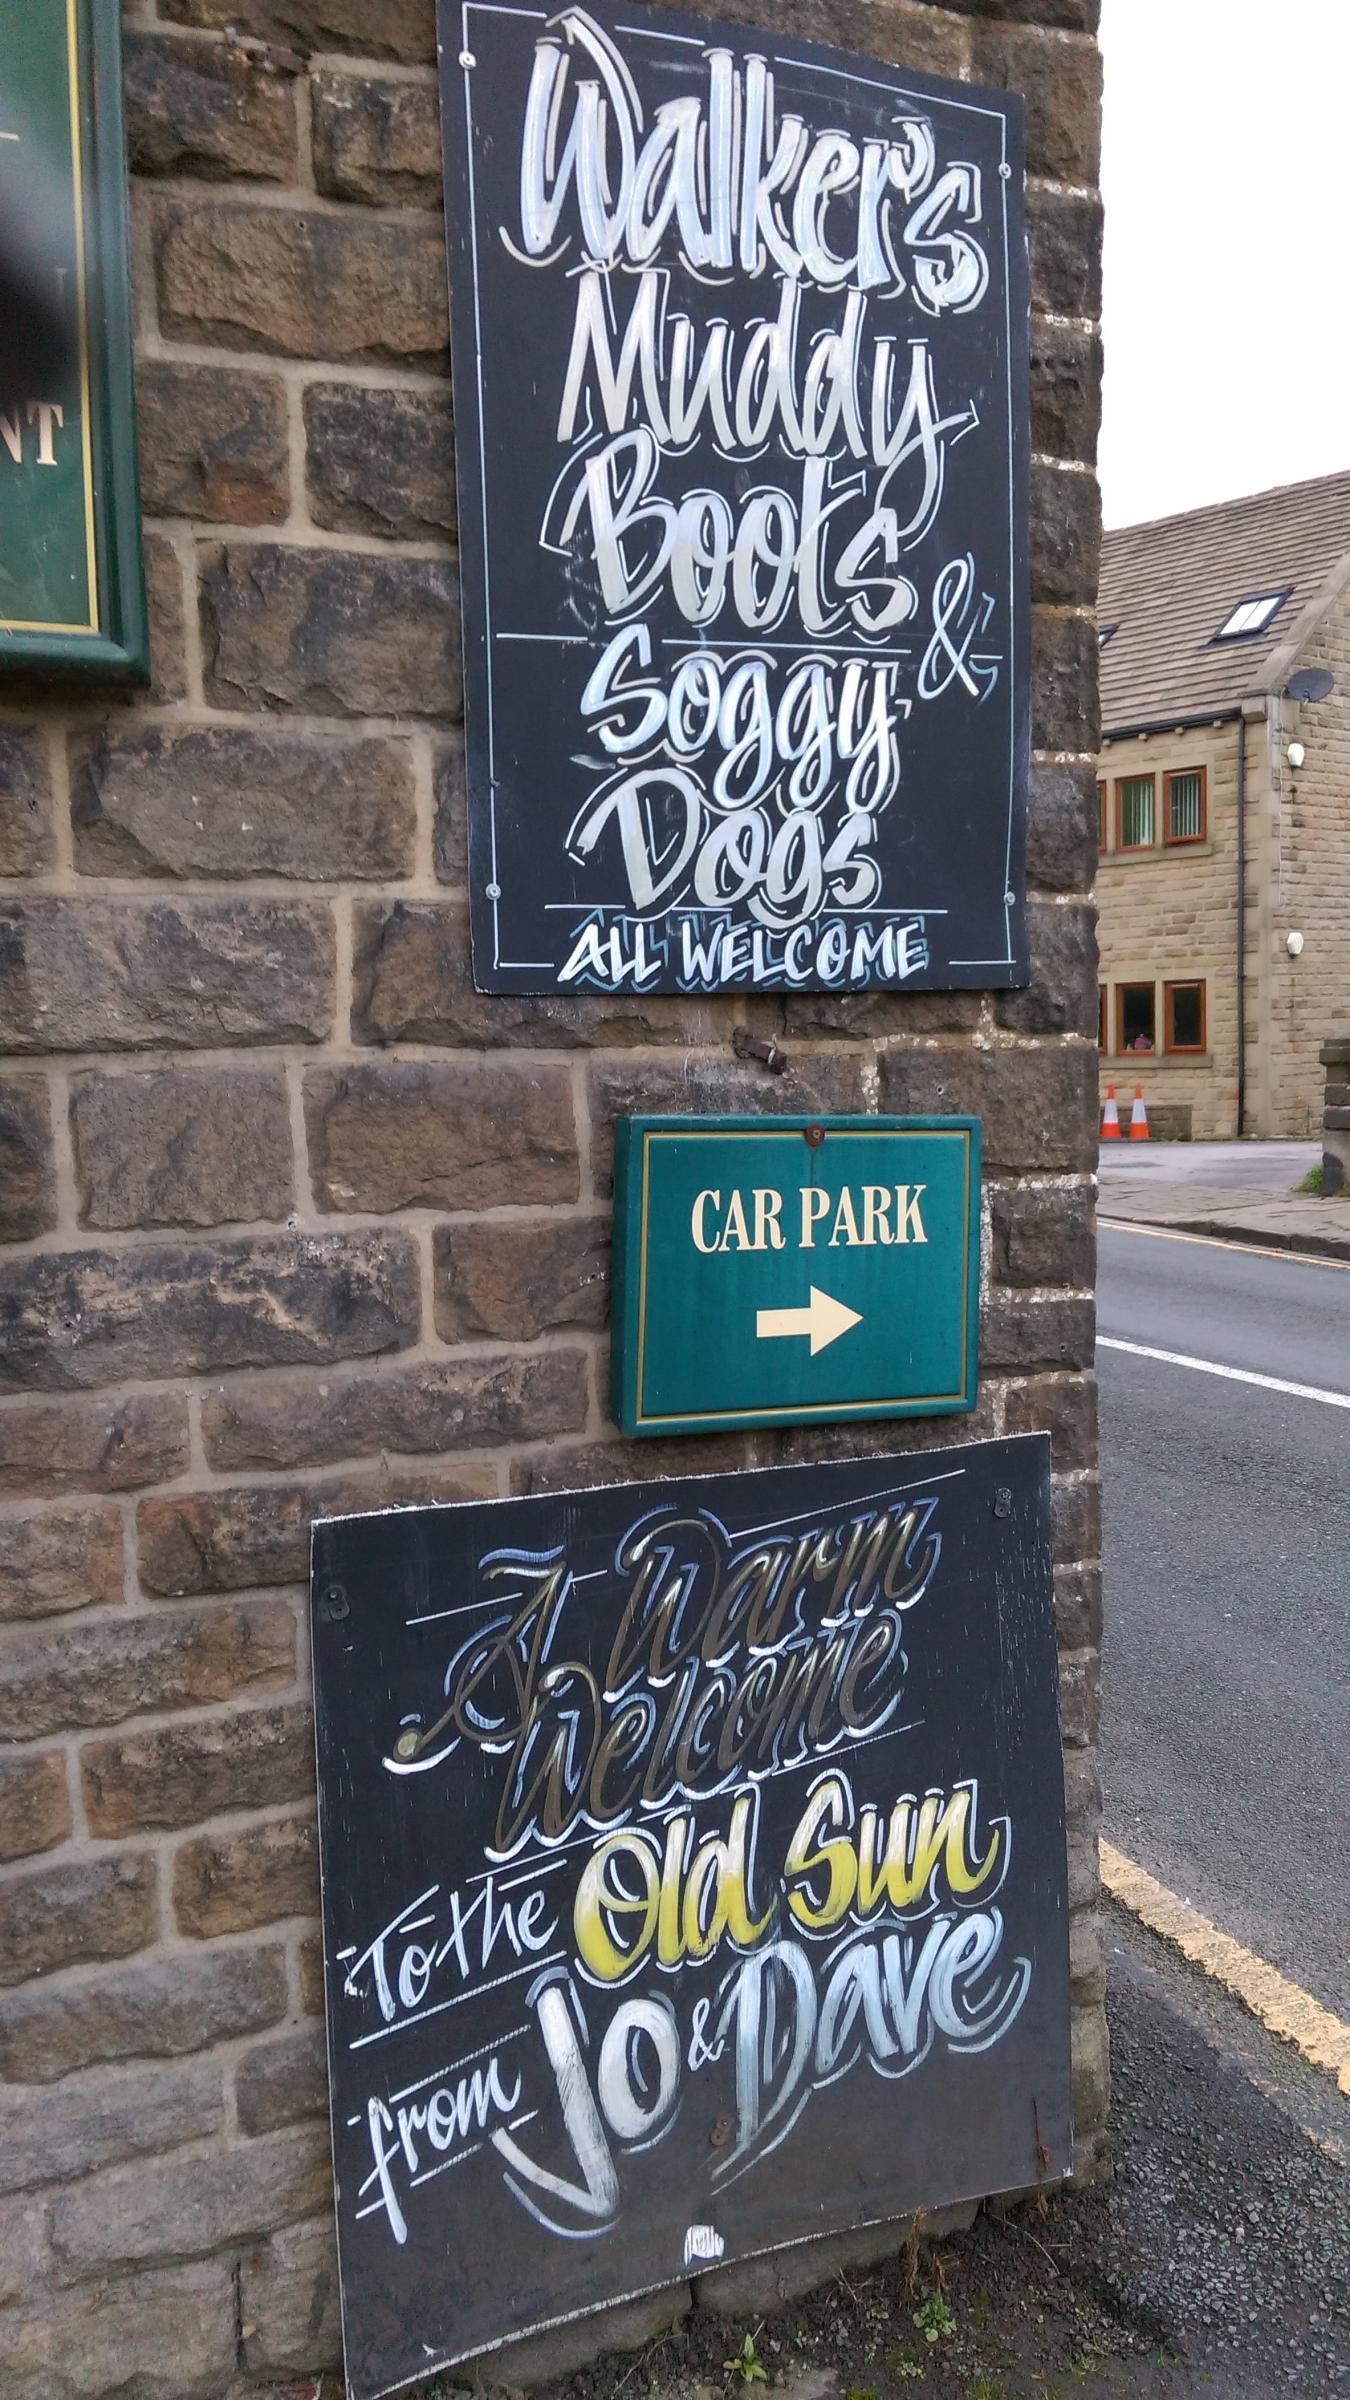 NT
Walker's
Muddy
Boots
&
Soggy
Dogs
ALL WELCOME
CAR PARK
A Warm
Welcome
To the Old Sun
from Jo & Dave